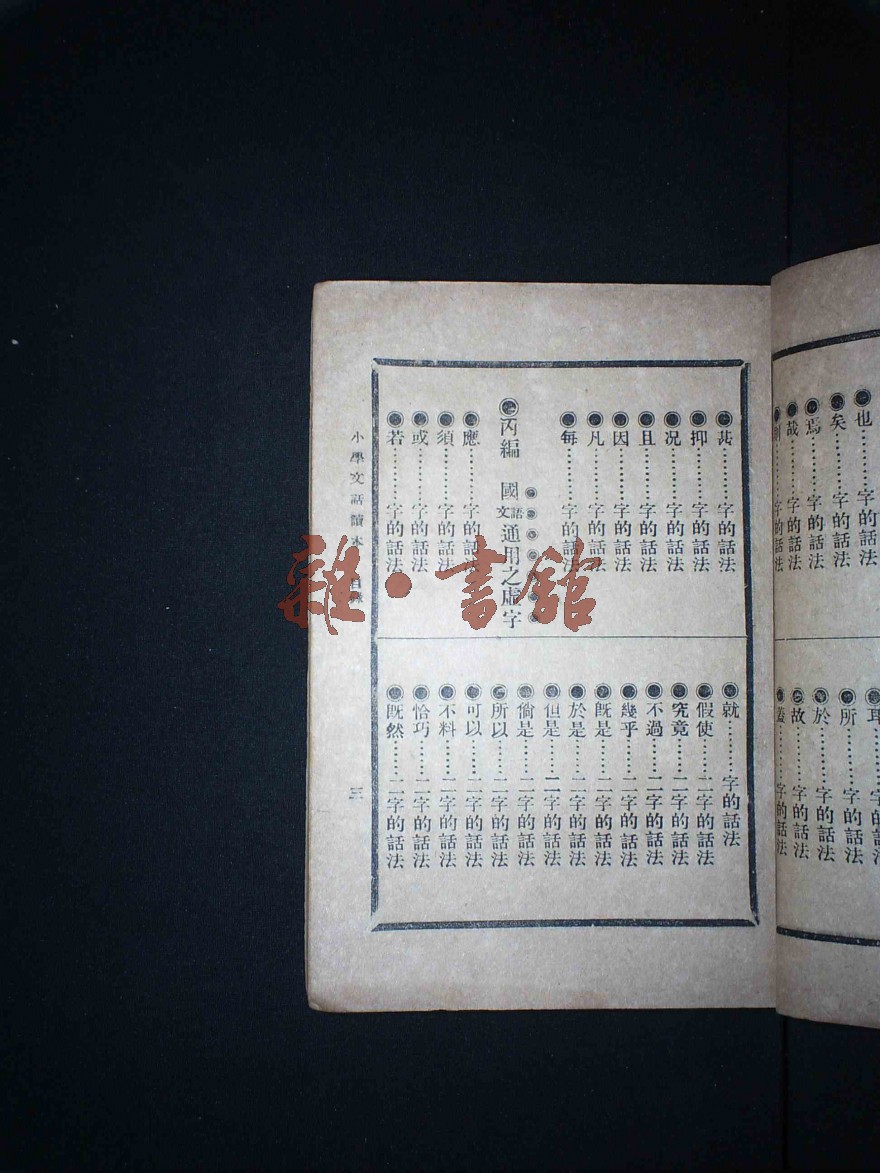 也………字的話法
矣………字的話法
焉………字的話法
哉………字的話法
所………字的話法
於………字的話法
故………字的話法
蓋………字的話法
甚………字的話法
抑………字的話法
况………字的話法
且………字的話法
因………字的話法
凡………字的話法
每………字的話法
丙編 國語文通用之虛字
應………字的話法
須………字的話法
或………字的話法
若………字的話法
就………字的話法
假使……二字的話法
究竟……二字的話法
不過……二字的話法
幾乎……二字的話法
旣是……二字的話法
於是……二字的話法
但是……二字的話法
倘是……二字的話法
所以……二字的話法
可以……二字的話法
不料……二字的話法
恰巧……二字的話法
旣然……二字的話法
小學文話讀本 目錄
三
雜·書館